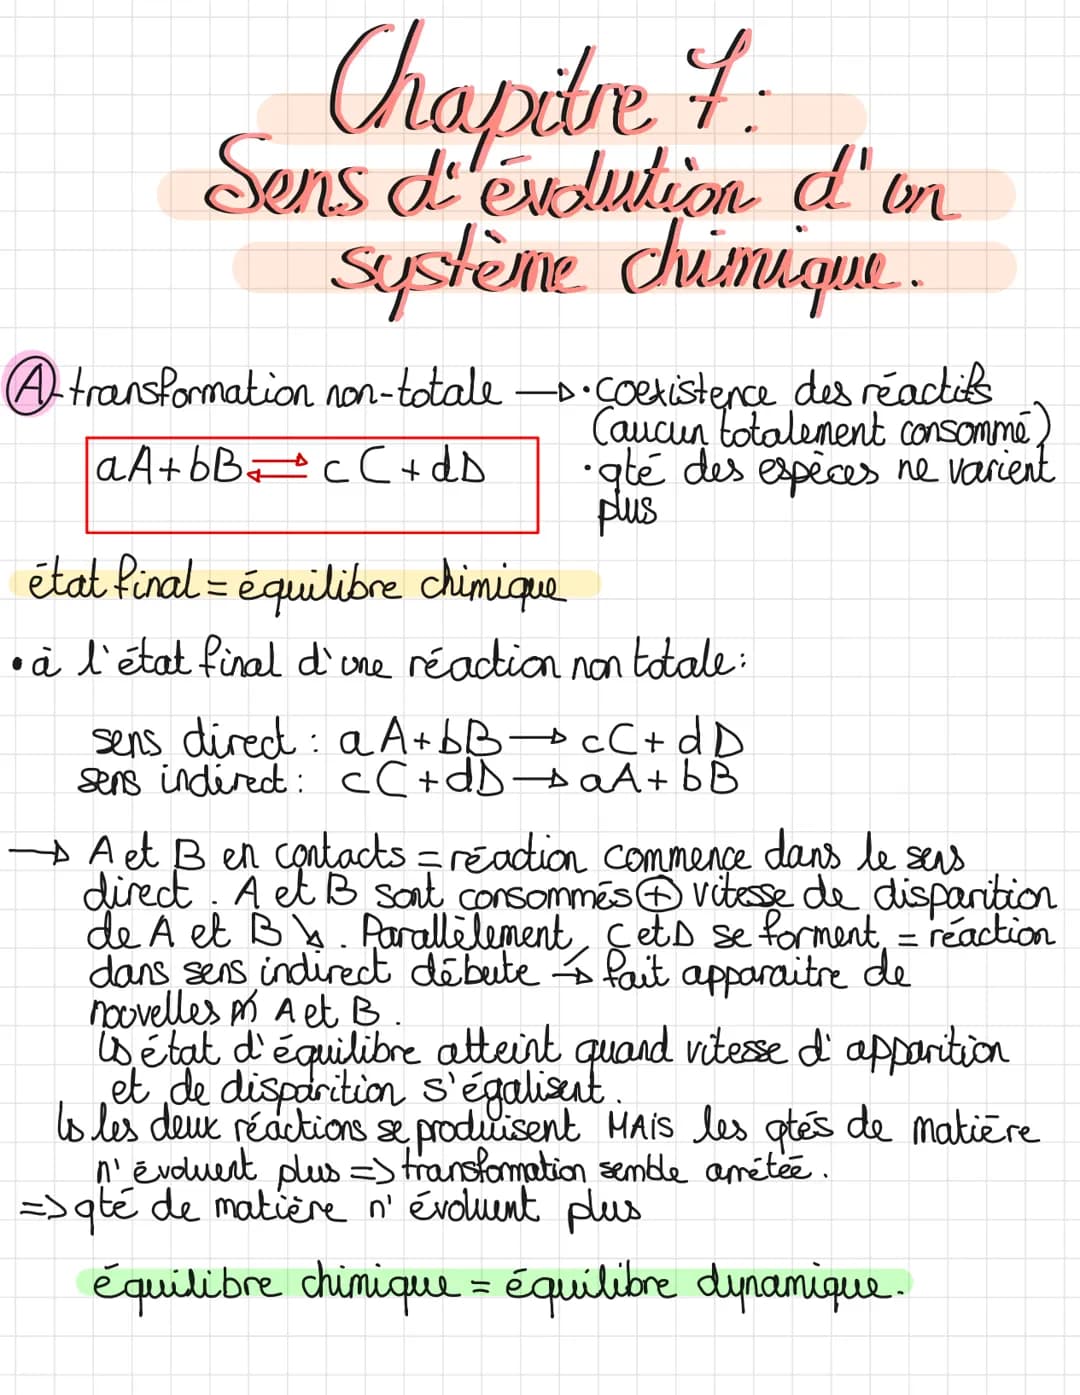 Chapitre 7 :
Sens d'évolution d'un
système chimique.
A- transformation non-totale → • coexistence des réactifs
(aucun totalement consommé)
aA+bB ⇄ cC+dD
• qté des espèces ne varient
plus
état final = équilibre chimique
• à l'état final d'une réaction non totale :
sens direct : aA+bB → cC+dD
sens indirect : cC+dD → aA+bB
→ A et B en contacts = réaction commence dans le sens
direct. A et B sont consommés ⊕ vitesse de disparition
de A et B ↘. Parallèlement, C et D se forment, = réaction
dans sens indirect débute → fait apparaitre de
nouvelles m A et B.
↳ état d'équilibre atteint quand vitesse d'apparition
et de disparition s'égalisent.
↳ les deux réactions se produisent MAIS les qtés de matière
n'évoluent plus => transformation semble arrêtée.
=> qté de matière n'évoluent plus
équilibre chimique = équilibre dynamique.